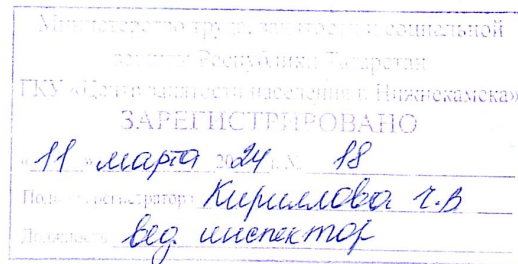 Министерство труда, занятости и социальной
защиты Республики Татарстан
ГКУ «Центр занятости населения г. Нижнекамска»
ЗАРЕГИСТРИРОВАНО
« 11 » марта 2024 г. № 18
Кириллова Г.В
Должность вед. инспектор